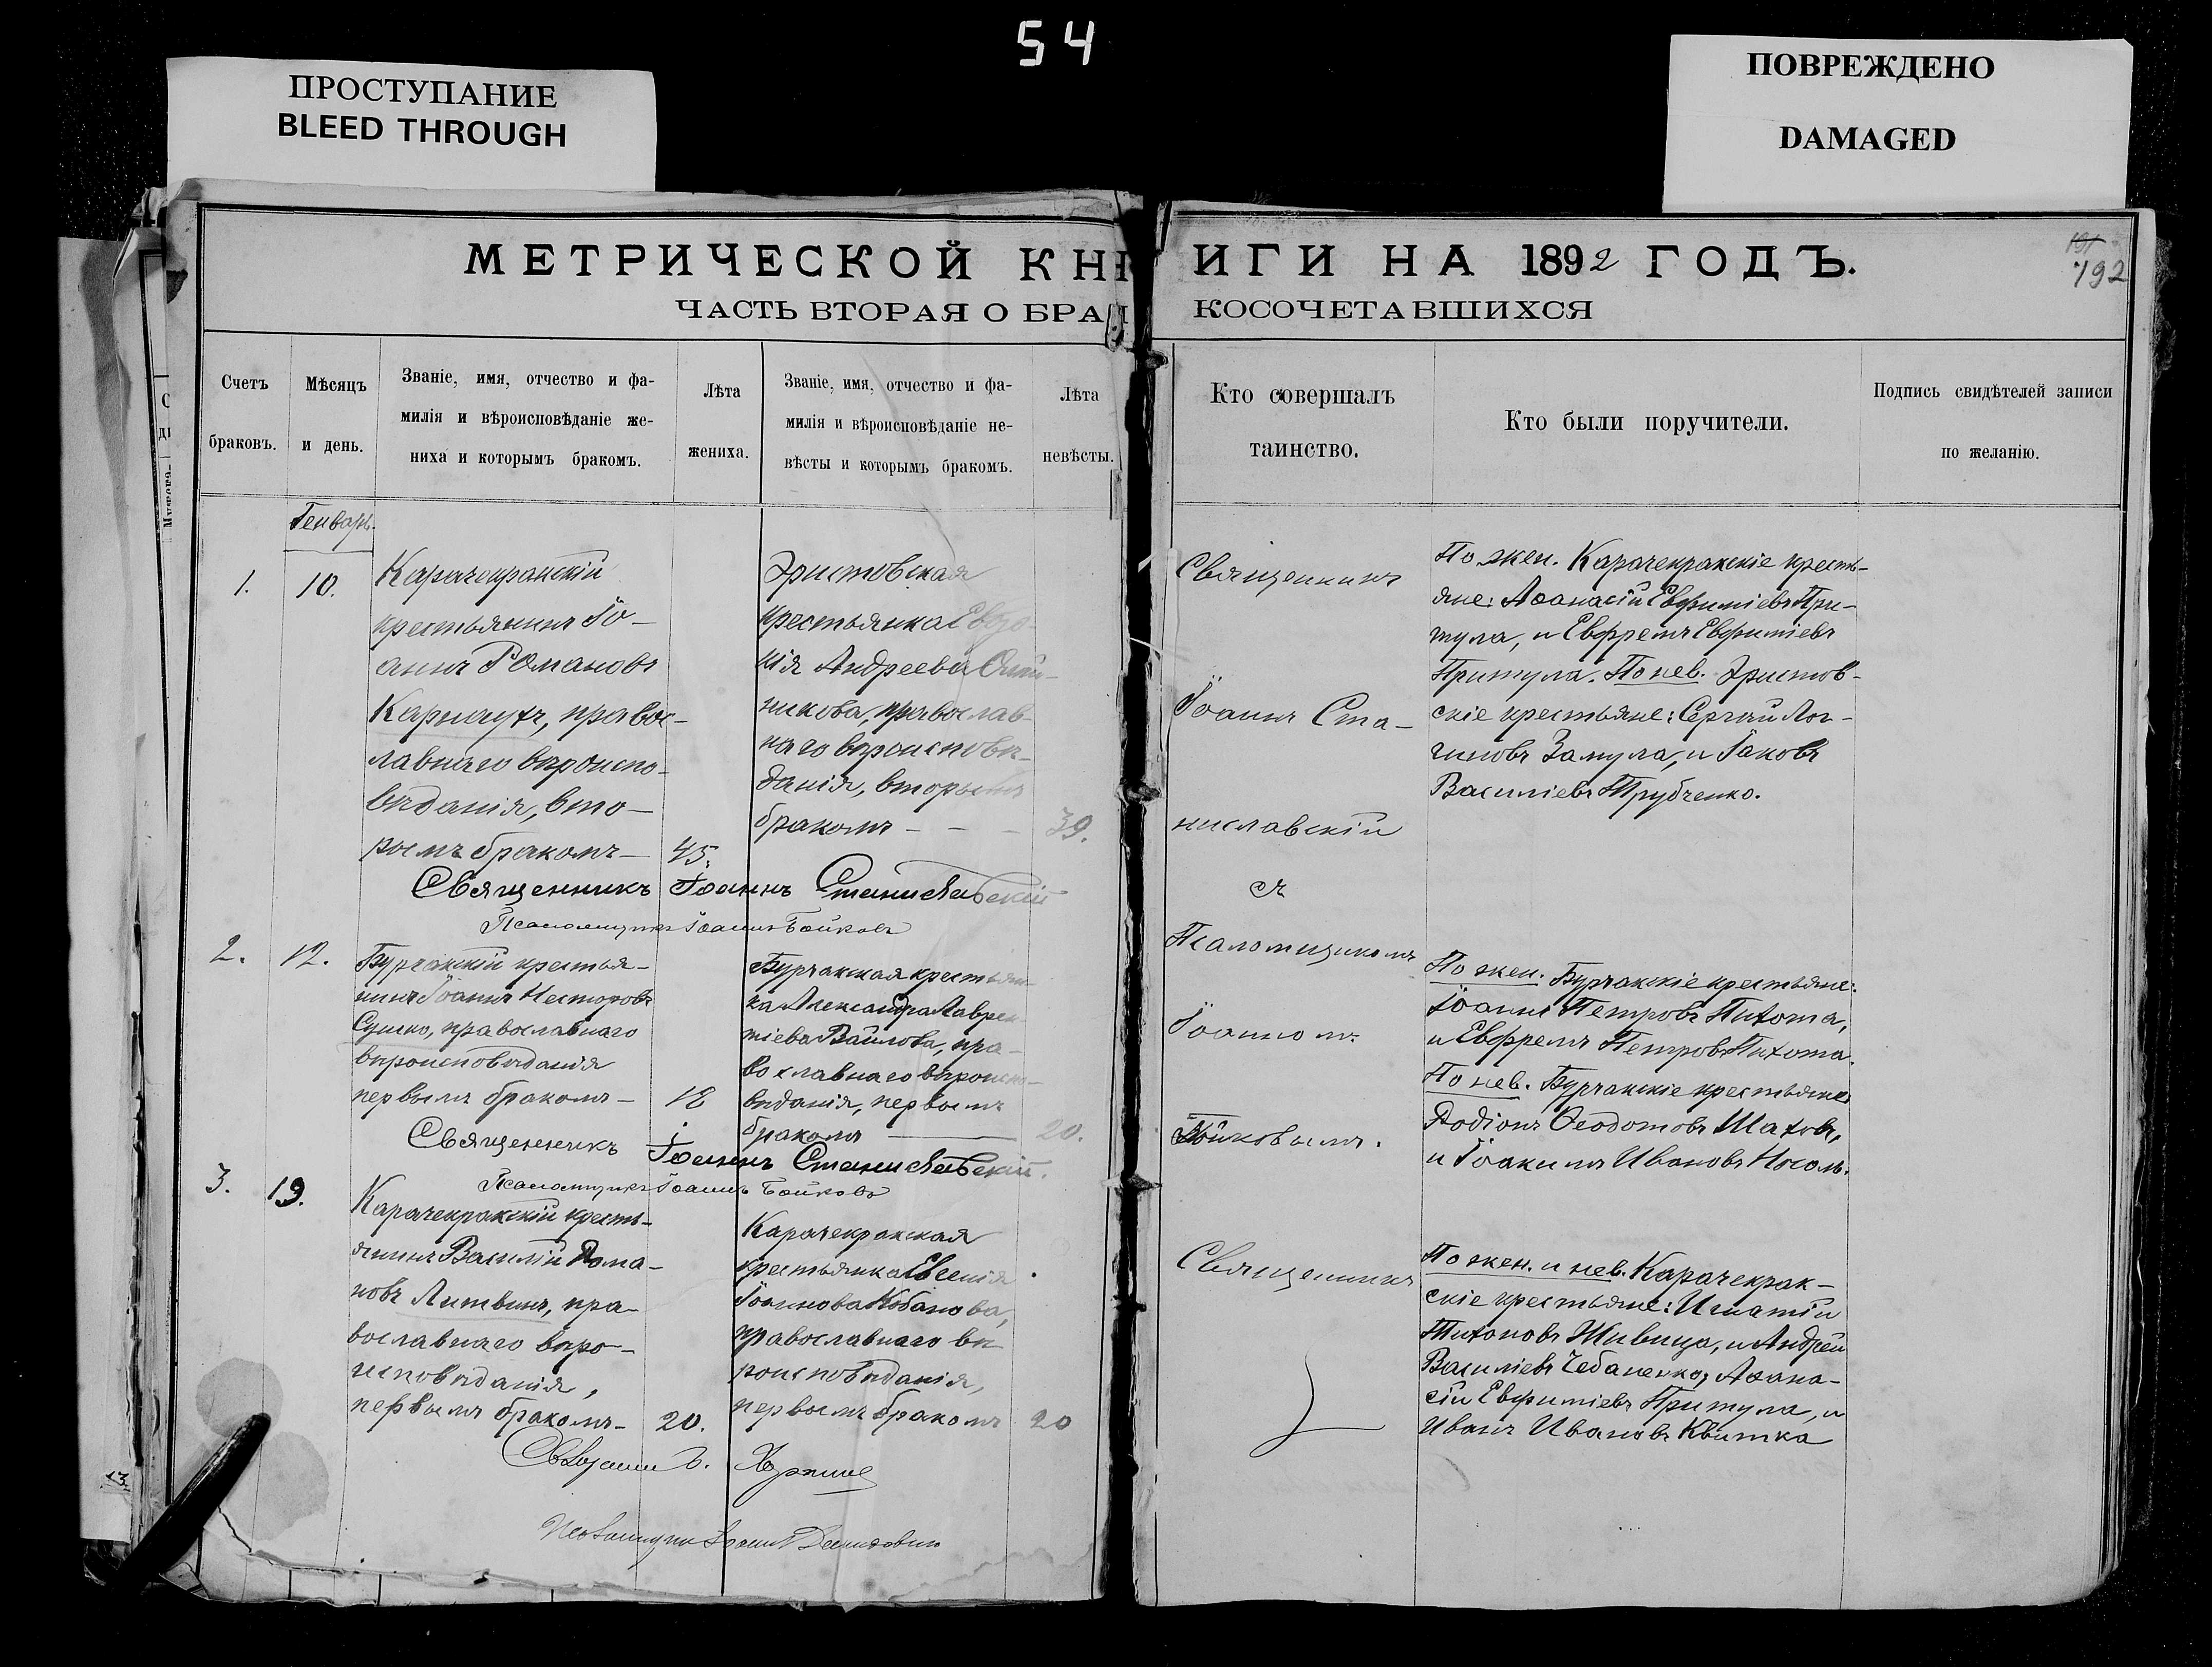 54
ПРОСТУПАНИЕ
BLEED THROUGH
ПОВРЕЖДЕНО
DAMAGED
МЕТРИЧЕСКОЙ КНИГИ НА 1892 ГОДЪ.
191
192
ЧАСТЬ ВТОРАЯ О БРАКОСОЧЕТАВШИХСЯ
Счетъ
браковъ.
Мѣсяцъ
и день.
Званіе, имя, отчество и фа-
милія и вѣроисповѣданіе же-
ниха и которымъ бракомъ.
Лѣта
жениха.
Званіе, имя, отчество и фа-
милія и вѣроисповѣданіе не-
вѣсты и которымъ бракомъ.
Лѣта
невѣсты.
Кто совершалъ
таинство.
Кто были поручители.
Подпись свидѣтелей записи
по желанію.
Генварь.
1.
10.
Карачекракскій
крестьянинъ Іо-
аннъ Романовъ
Карнаухъ, правос-
лавнаго вѣроиспо-
вѣданія, вто-
рымъ бракомъ—
45.
Эристовская
крестьянка Евдо-
кія Андреева
никова, православ-
наго вѣроисповѣ-
данія, вторымъ
бракомъ - - -
39.
Священникъ Іоаннъ Станиславскій
Псаломщикъ Іоаннъ Бойковъ
Священникъ
Іоаннъ Ста-
ниславскій
съ
Псаломщикомъ
Іоанномъ
Бойковымъ.
По жен. Карачекракскіе кресть-
яне: Аѳанасій Евфиміевъ При-
тула, и Евфремъ Евфиміевъ
Притула. По нев. Эристов-
скіе крестьяне: Сергій Лог-
гиновъ Замула, и Іаковъ
Василіевъ Трубченко.
2.
12.
Бурчакскій крестья-
нинъ Іоаннъ Несторовъ
Сушко, православнаго
вѣроисповѣданія
первымъ бракомъ—
18
Бурчакская крестьян-
ка Александра Лаврен-
тіева Вайлова, пра-
вославнаго вѣроиспо-
вѣданія, первымъ
бракомъ —
20.
Священникъ Іоаннъ Станиславскій.
Псаломщикъ Іоаннъ Бойковъ
По жен. Бурчакскіе крестьяне:
Іоаннъ Петровъ Пихота,
и Евфремъ Петровъ Пихота.
По нев. Бурчакскіе крестьяне
Родіонъ Ѳеодотовъ Шаховъ,
и Іоакимъ Ивановъ Носоль.
3.
19.
Карачекракскій кресть-
янинъ Василій Рома-
новъ Литвинъ, пра-
вославнаго вѣро-
исповѣданія,
первымъ бракомъ—
20.
Карачекракская
крестьянка Евгенія
Іоаннова Кобанова,
православнаго вѣ-
роисповѣданія,
первымъ бракомъ
20
Священникъ
По жен. и нев. Карачекрак-
скіе крестьяне: Игнатій
Тихоновъ Живица, и Андрей
Василіевъ Чебаненко, Аѳана-
сій Евфиміевъ Притула, и
Иванъ Ивановъ Квитка
13